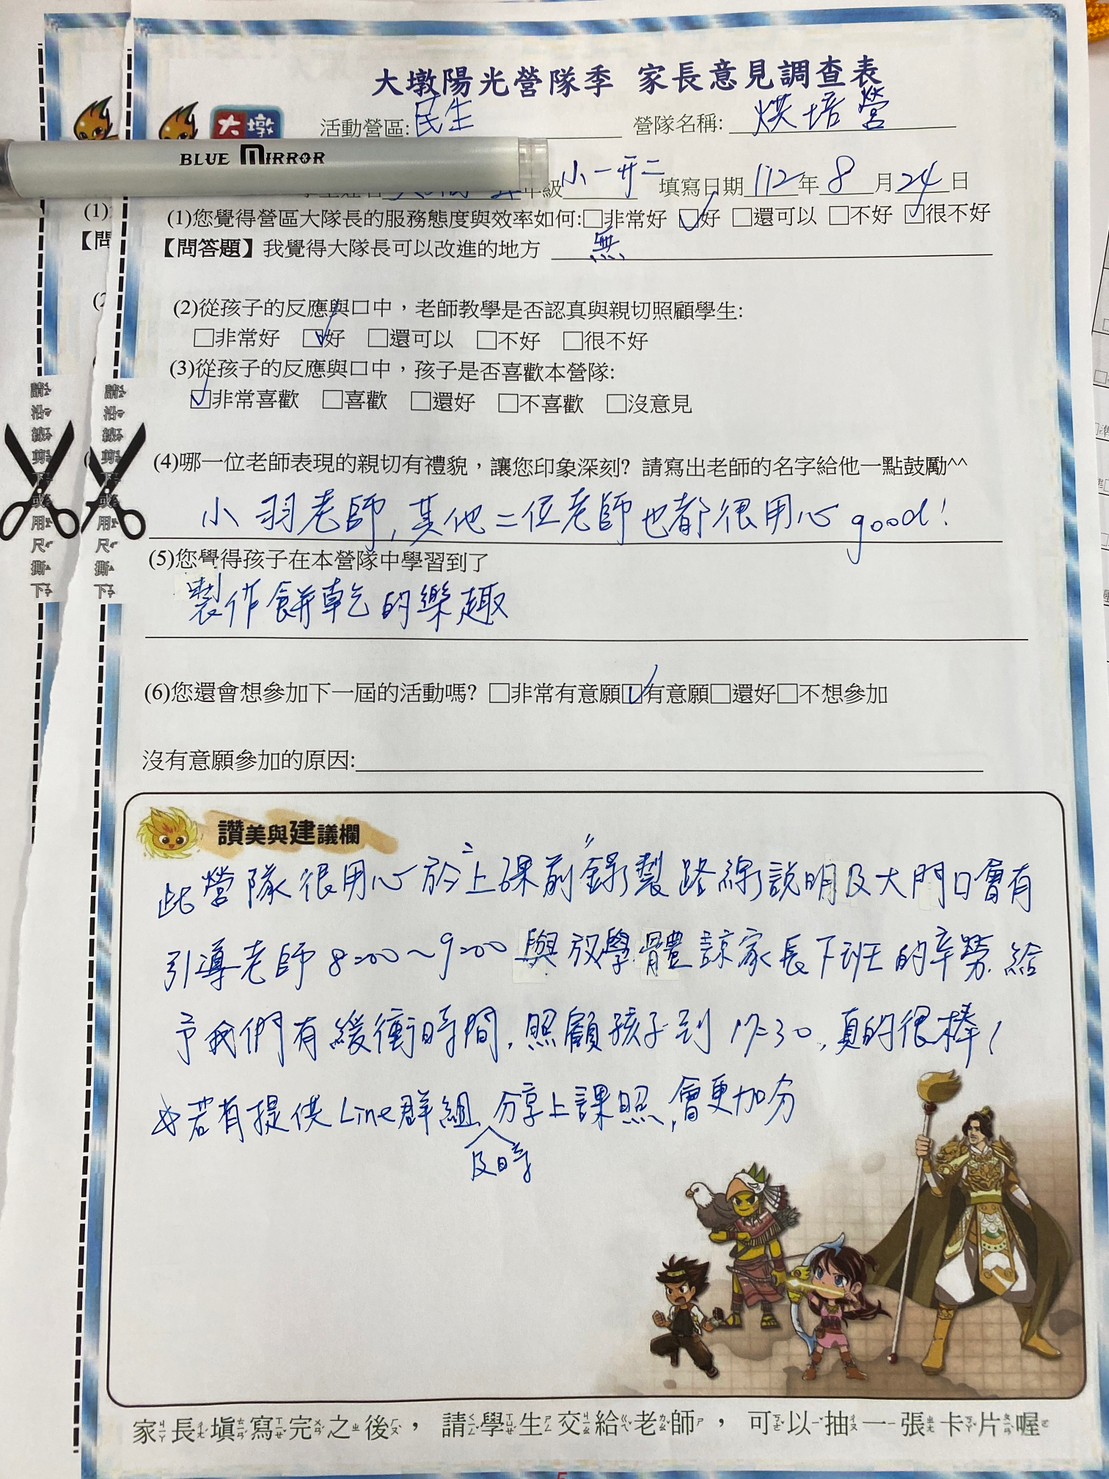 大墩陽光營隊季 家長意見調查表
大墩
活動營區:民生 營隊名稱:烘培營
BLUE MIRROR
年級小一升二 填寫日期112年8月24日
(1)您覺得營區大隊長的服務態度與效率如何:□非常好 ☑好 □還可以 □不好 ☑很不好
【問答題】我覺得大隊長可以改進的地方 無
(2)從孩子的反應與口中，老師教學是否認真與親切照顧學生:
□非常好 ☑好 □還可以 □不好 □很不好
(3)從孩子的反應與口中，孩子是否喜歡本營隊:
☑非常喜歡 □喜歡 □還好 □不喜歡 □沒意見
(4)哪一位老師表現的親切有禮貌，讓您印象深刻? 請寫出老師的名字給他一點鼓勵^^
小羽老師,其他二位老師也都很用心 good!
(5)您覺得孩子在本營隊中學習到了
製作餅乾的樂趣
(6)您還會想參加下一屆的活動嗎? □非常有意願☑有意願□還好□不想參加
沒有意願參加的原因:
讚美與建議欄
此營隊很用心於"上課前"錄製路線說明及大門口會有
引導老師8:00~9:00與放學體諒家長下班的辛勞.給
予我們有緩衝時間,照顧孩子到17:30,真的很棒!
☆若有提供Line群組 分享上課照,會更加分
及時
家長填寫完之後，請學生交給老師，可以抽一張卡片喔
請沿線剪下或用尺撕下
(1)
【問
(2